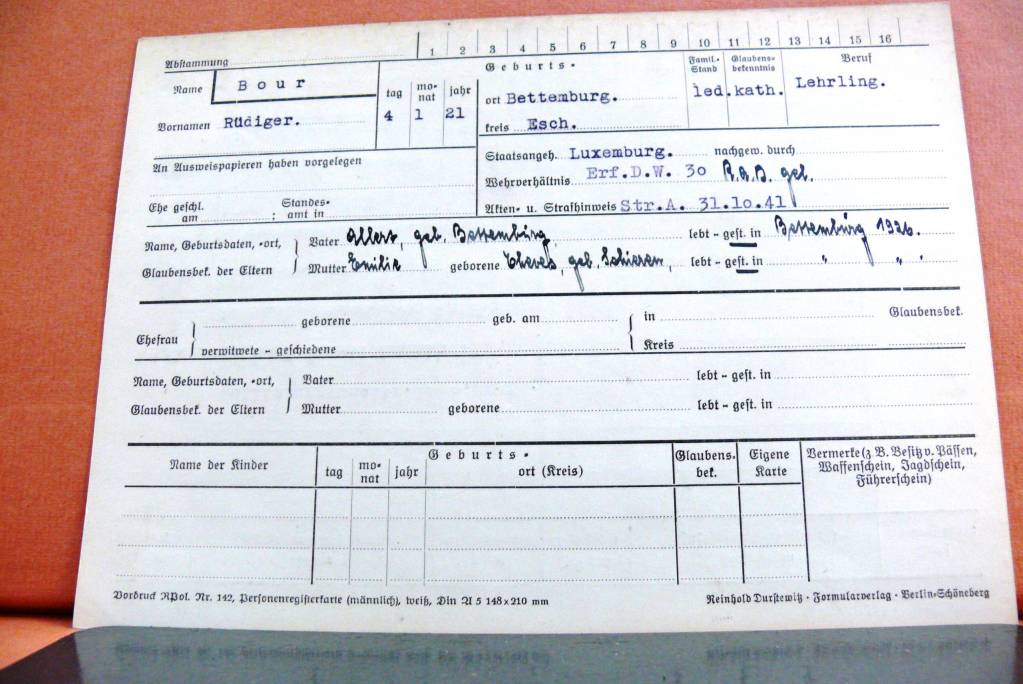 1 2 3 4 5 6 7 8 9 10 11 12 13 14 15 16
Abstammung
Name Bour
Vornamen Rüdiger.
tag monat jahr
4 1 21
Geburts-
ort Bettemburg.
kreis Esch.
Famil.-Stand
led.
Glaubens-bekenntnis
kath.
Beruf
Lehrling.
An Ausweispapieren haben vorgelegen
Ehe geschl. am ; Standes-amt in
Staatsangeh. Luxemburg. nachgew. durch
Wehrverhältnis Erf.D.W. 30 R.a.D. gel.
Akten- u. Strafhinweis Str.A. 31.10.41
Name, Geburtsdaten, -ort, Vater Albert, geb. Bettemburg, lebt - gest. in Bettemburg 1926.
Glaubensbek. der Eltern Mutter Emilie geborene geb. Schieren, lebt - gest. in " " .
Ehefrau geborene geb. am in Glaubensbek.
verwitwete - geschiedene Kreis
Name, Geburtsdaten, -ort, Vater lebt - gest. in
Glaubensbek. der Eltern Mutter geborene lebt - gest. in
Name der Kinder
Geburts-
tag monat jahr ort (Kreis)
Glaubens-bek.
Eigene Karte
Vermerke (z. B. Besitz v. Pässen,
Waffenschein, Jagdschein,
Führerschein)
Vordruck RPol. Nr. 142, Personenregisterkarte (männlich), weiß, Din A 5 148 x 210 mm
Reinhold Durstewitz · Formularverlag · Berlin-Schöneberg